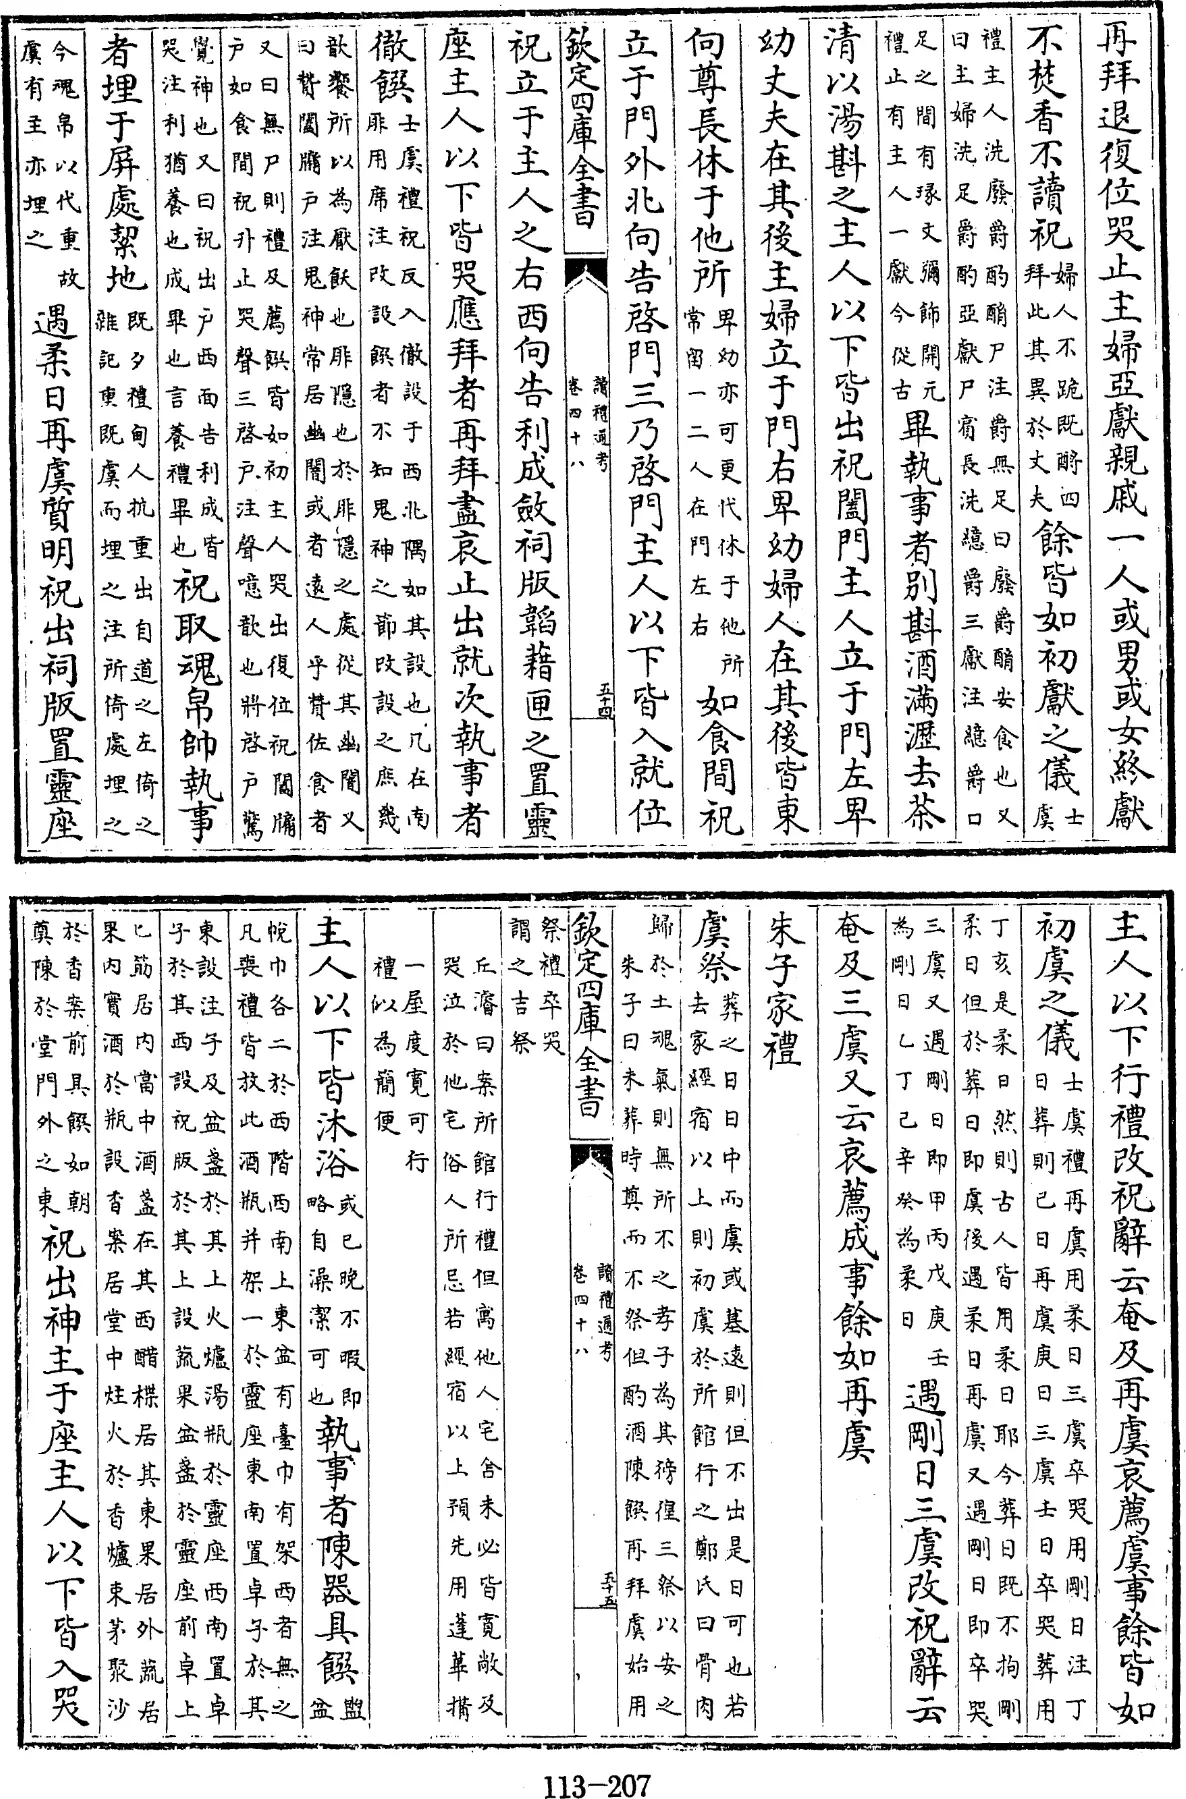 再拜退復位哭止主婦亞獻親戚一人或男或女終獻
不焚香不讀祝婦人不跪既酹四拜此其異於丈夫餘皆如初獻之儀士虞
禮主人洗廢爵酌酳尸注爵無足曰廢爵酳安食也又
曰主婦洗足爵酌亞獻尸賓長洗繶爵三獻注繶爵口
足之間有瑑文彌飾開元禮止有主人一獻今從古畢執事者別斟酒滿瀝去茶
清以湯斟之主人以下皆出祝闔門主人立于門左卑
幼丈夫在其後主婦立于門右卑幼婦人在其後皆東
向尊長休于他所卑幼亦可更代休于他所常留一二人在門左右如食間祝
立于門外北向告啓門三乃啓門主人以下皆入就位
欽定四庫全書 讀禮通考 卷四十八 五十四
祝立于主人之右西向告利成斂祠版韜藉匣之置靈
座主人以下皆哭應拜者再拜盡哀止出就次執事者
徹饌士虞禮祝反入徹設于西北隅如其設也几在南厞用席注改設饌者不知鬼神之節改設之庶幾
歆饗所以為厭飫也厞隱也於厞隱之處從其幽闇又
曰贊闔牖戶注鬼神常居幽闇或者遠人乎贊佐食者
又曰無尸則禮及薦饌皆如初主人哭出復位祝闔牖
戶如食間祝升止哭聲三啓戶注聲噫歆也將啓戶驚
覺神也又曰祝出戶西面告利成皆哭注利猶養也成畢也言養禮畢也祝取魂帛帥執事
者埋于屏處絜地既夕禮甸人抗重出自道之左倚之雜記重既虞而埋之注所倚處埋之
今魂帛以代重故虞有主亦埋之遇柔日再虞質明祝出祠版置靈座
主人以下行禮改祝辭云奄及再虞哀薦虞事餘皆如
初虞之儀士虞禮再虞用柔日三虞卒哭用剛日注丁日葬則己日再虞庚日三虞壬日卒哭葬用
丁亥是柔日然則古人皆用柔日耶今葬日既不拘剛
柔日但於葬日即虞後遇柔日再虞又遇剛日即卒哭
三虞又遇剛日即甲丙戊庚壬為剛日乙丁己辛癸為柔日遇剛日三虞改祝辭云
奄及三虞又云哀薦成事餘如再虞
朱子家禮
虞祭葬之日日中而虞或墓遠則但不出是日可也若去家經宿以上則初虞於所館行之鄭氏曰骨肉
歸於土魂氣則無所不之孝子為其徬徨三祭以安之
朱子曰未葬時奠而不祭但酌酒陳饌再拜虞始用
欽定四庫全書 讀禮通考 卷四十八 五十五
祭禮卒哭謂之吉祭
丘濬曰案所館行禮但寓他人宅舍未必皆寬敞及
哭泣於他宅俗人所忌若經宿以上預先用蓬蓽搆
一屋度寬可行禮似為簡便
主人以下皆沐浴或已晚不暇即略自澡潔可也執事者陳器具饌盥盆
帨巾各二於西階西南上東盆有臺巾有架西者無之
凡喪禮皆放此酒瓶并架一於靈座東南置卓子於其
東設注子及盆盞於其上火爐湯瓶於靈座西南置卓
子於其西設祝版於其上設蔬果盆盞於靈座前卓上
匕筯居內當中酒盞在其西醋楪居其東果居外蔬居
果內實酒於瓶設香案居堂中炷火於香爐束茅聚沙
於香案前具饌如朝奠陳於堂門外之東祝出神主于座主人以下皆入哭
113-207